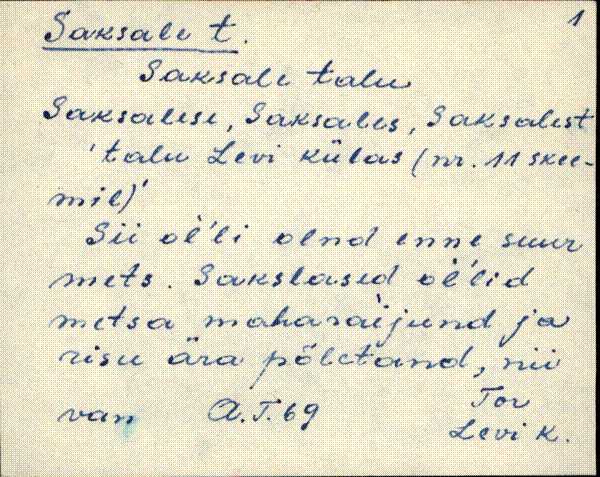 1
Saksale t.
Saksale talu
Saksalese, Saksales, Saksalest
'talu Levi külas (nr. 11 skee-
mil)'
Sii ol'li olnd enne suur
mets. Sakslased ol'lid
metsa maharaijund ja
risu ära põletand, nii
van A.T. 69 Tor
Levi k.